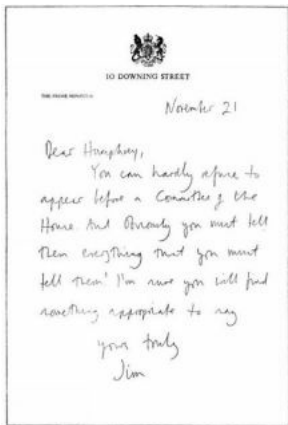 10 DOWNING STREET
THE PRIME MINISTER
November 21
Dear Humphrey,
You can hardly refuse to
appear before a Committee of the
House. And Obviously you must tell
them everything that you must
tell them! I'm sure you will find
something appropriate to say
yours truly
Jim